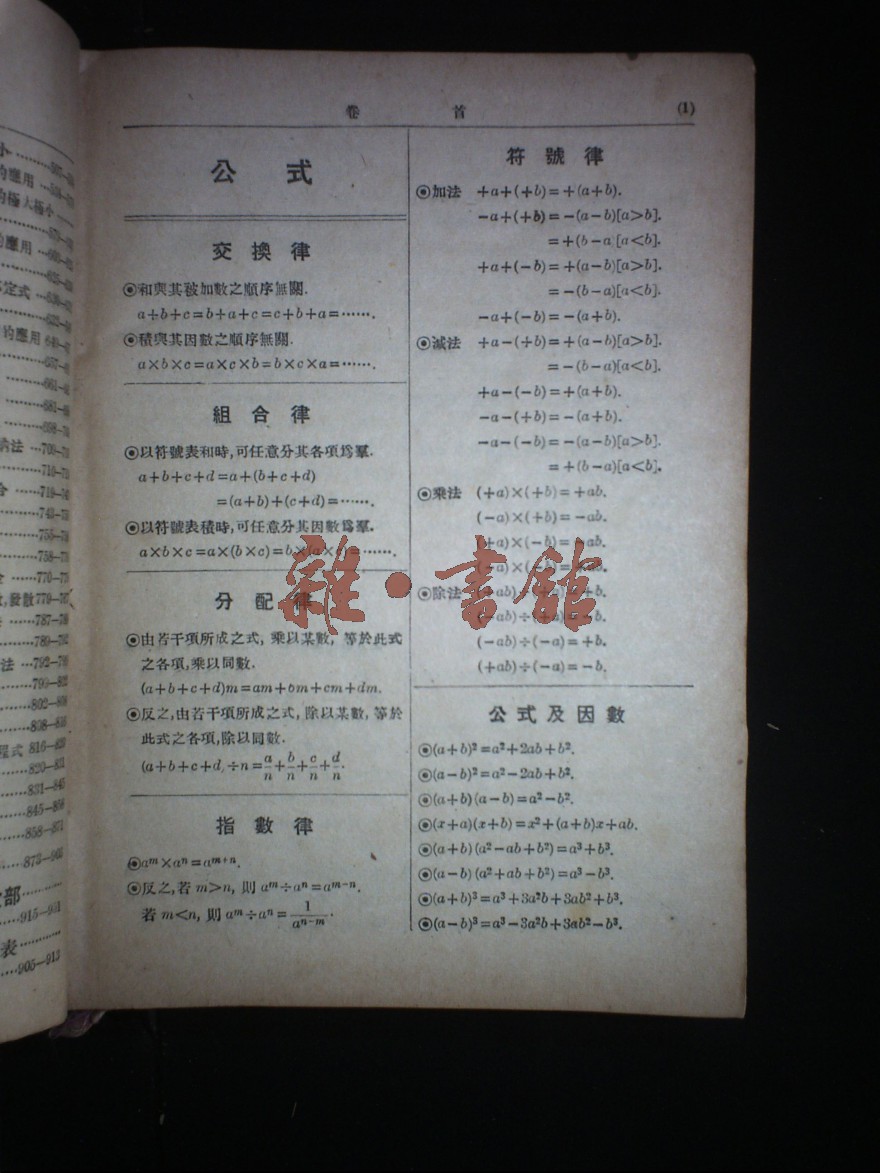 卷 首 (1)
公 式
交 換 律
◉和與其被加數之順序無關.
a+b+c=b+a+c=c+b+a=…….
◉積與其因數之順序無關.
a×b×c=a×c×b=b×c×a=…….
組 合 律
◉以符號表和時,可任意分其各項爲羣.
a+b+c+d=a+(b+c+d)
=(a+b)+(c+d)=…….
◉以符號表積時,可任意分其因數爲羣.
a×b×c=a×(b×c)=b×(a×c)=…….
分 配 律
◉由若干項所成之式, 乘以某數, 等於此式
之各項,乘以同數.
(a+b+c+d)m=am+bm+cm+dm.
◉反之,由若干項所成之式, 除以某數, 等於
此式之各項,除以同數.
(a+b+c+d)÷n=a/n+b/n+c/n+d/n.
指 數 律
◉aᵐ×aⁿ=aᵐ⁺ⁿ.
◉反之,若 m>n, 則 aᵐ÷aⁿ=aᵐ⁻ⁿ.
若 m<n, 則 aᵐ÷aⁿ=1/aⁿ⁻ᵐ.
符 號 律
◉加法 +a+(+b)=+(a+b).
-a+(+b)=-(a-b)[a>b].
=+(b-a)[a<b].
+a+(-b)=+(a-b)[a>b].
=-(b-a)[a<b].
-a+(-b)=-(a+b).
◉減法 +a-(+b)=+(a-b)[a>b].
=-(b-a)[a<b].
+a-(-b)=+(a+b).
-a-(+b)=-(a+b).
-a-(-b)=-(a-b)[a>b].
=+(b-a)[a<b].
◉乘法 (+a)×(+b)=+ab.
(-a)×(+b)=-ab.
(+a)×(-b)=-ab.
(-a)×(-b)=+ab.
◉除法 (+ab)÷(+a)=+b.
(-ab)÷(+a)=-b.
(-ab)÷(-a)=+b.
(+ab)÷(-a)=-b.
公 式 及 因 數
◉(a+b)²=a²+2ab+b².
◉(a-b)²=a²-2ab+b².
◉(a+b)(a-b)=a²-b².
◉(x+a)(x+b)=x²+(a+b)x+ab.
◉(a+b)(a²-ab+b²)=a³+b³.
◉(a-b)(a²+ab+b²)=a³-b³.
◉(a+b)³=a³+3a²b+3ab²+b³.
◉(a-b)³=a³-3a²b+3ab²-b³.
雜·書館